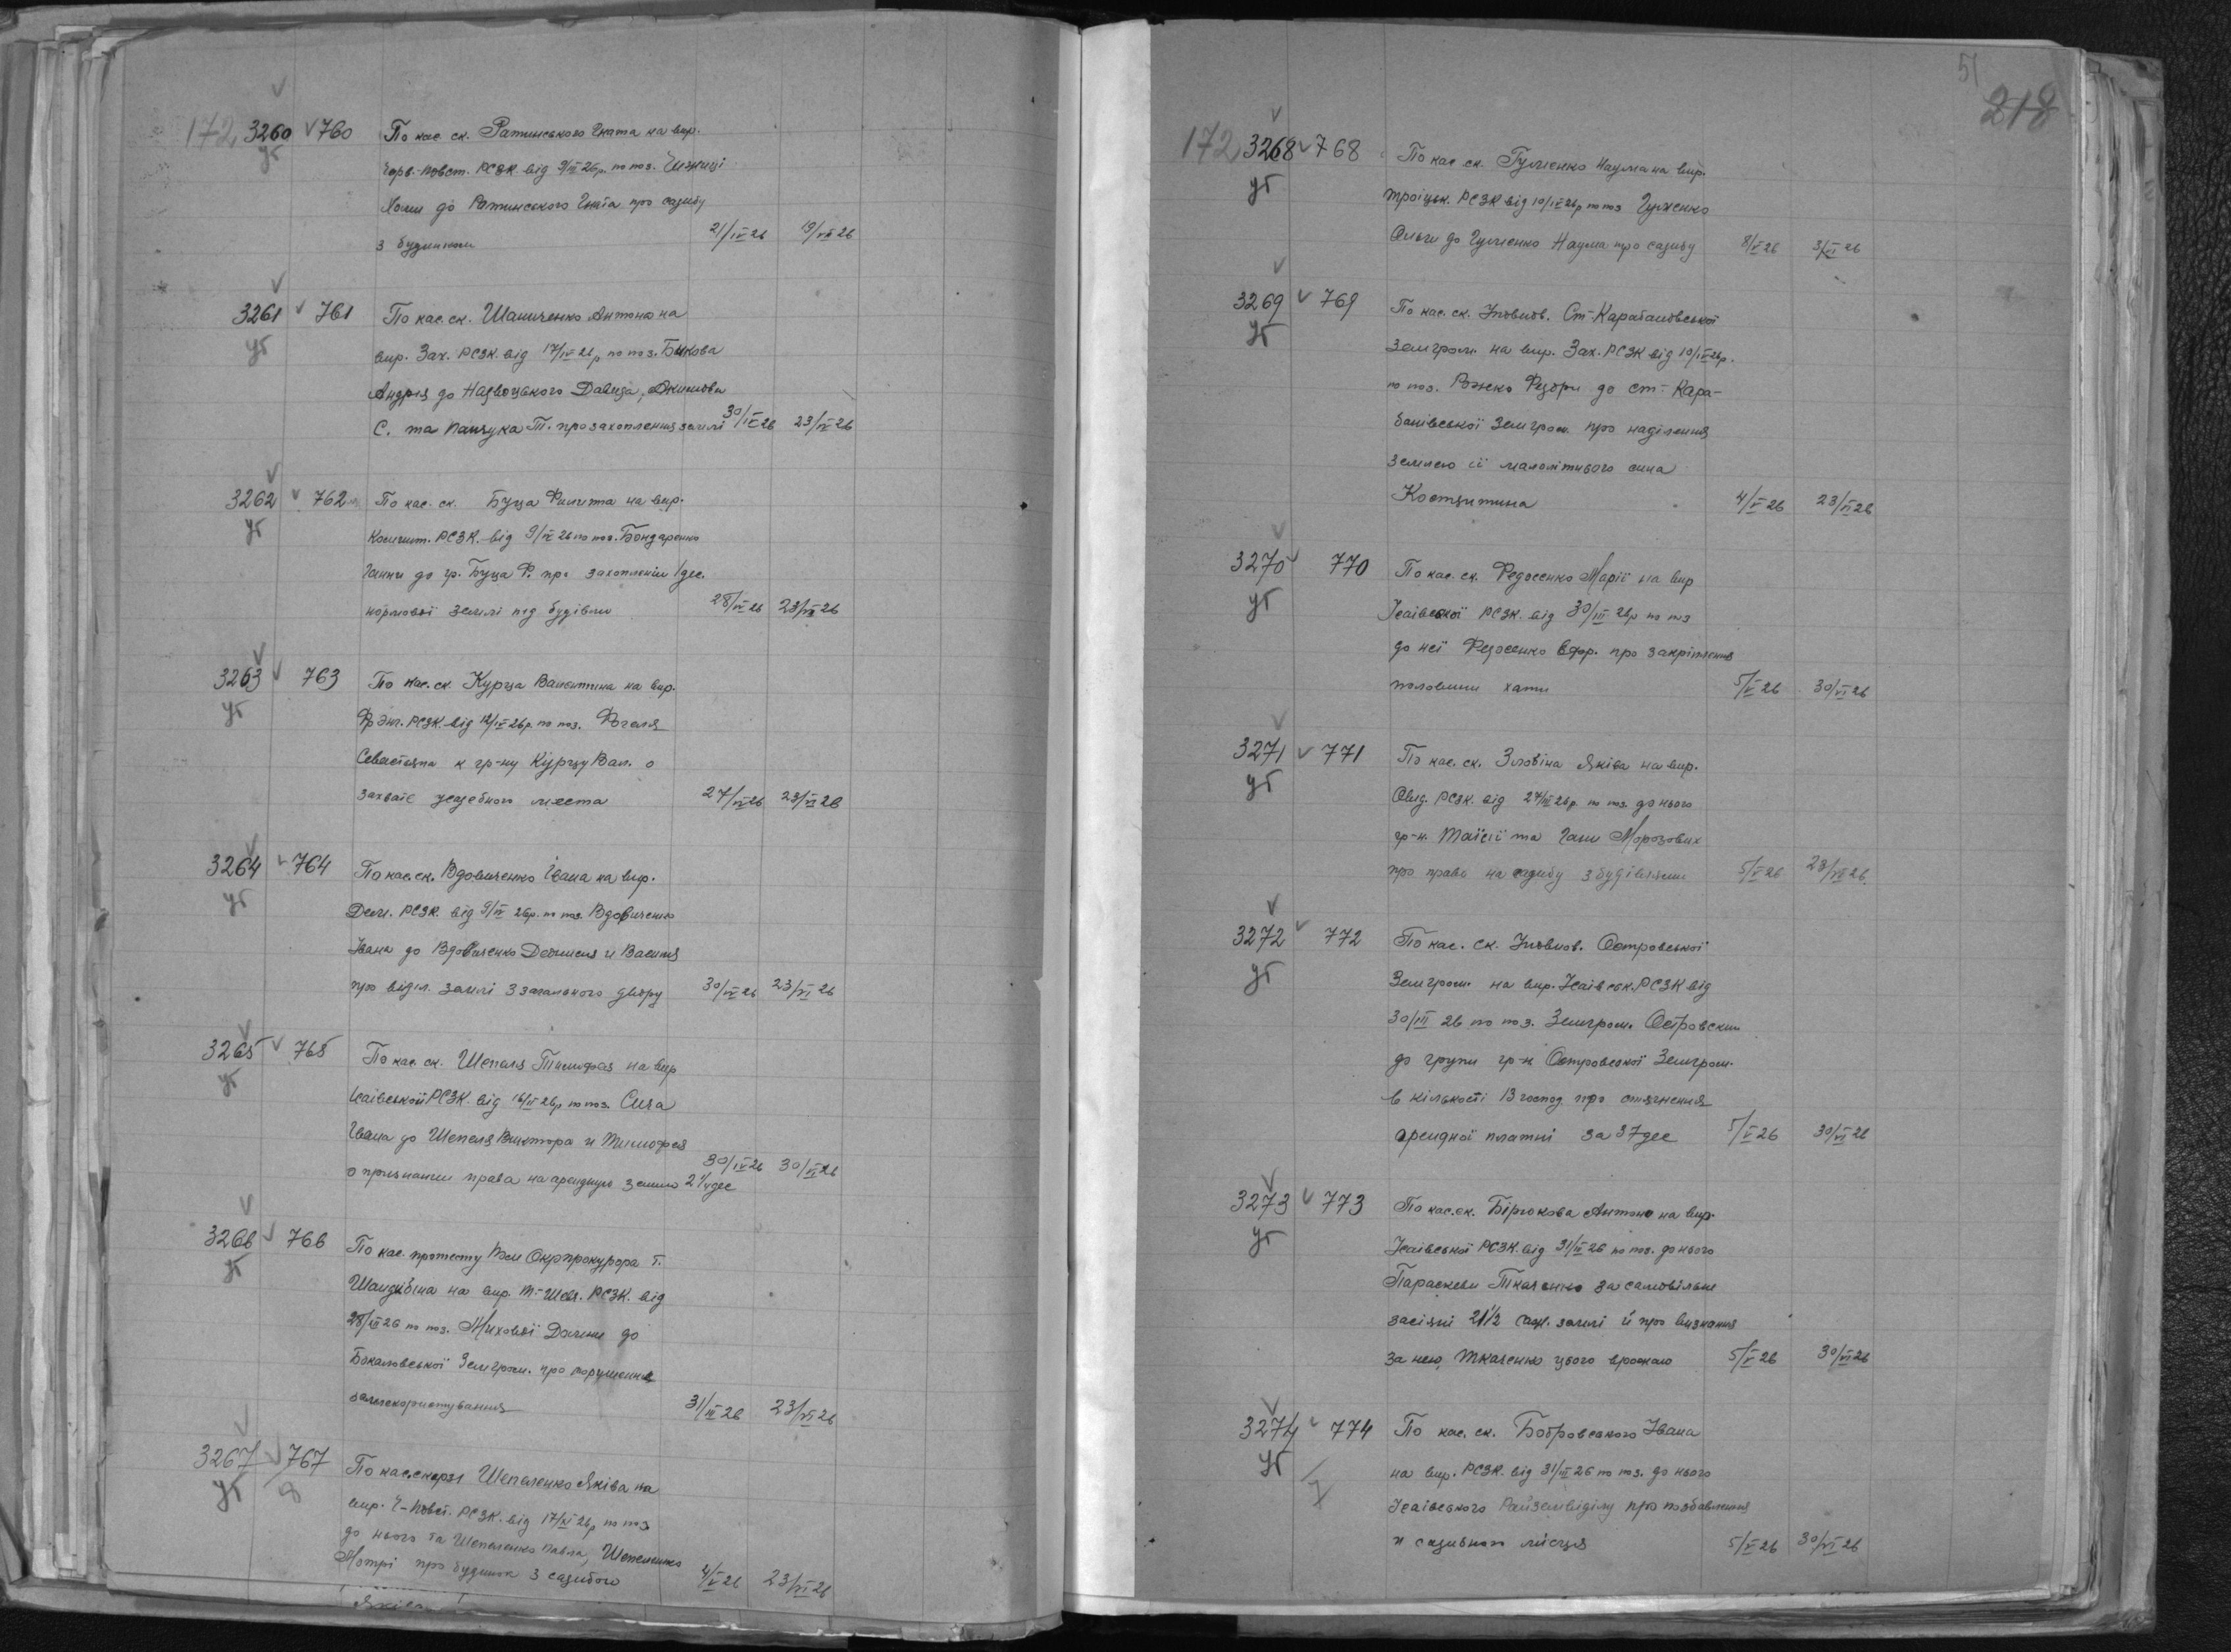 172 3260 760 По кас. ск. Ратинського Гната на вир.
уг Черв.-повст. РСЗК від 9/III 26р. по поз.
до Ратинського Гната про садибу
з будинком 21/IV 26 19/VI 26
3261 761 По кас. ск. Шаниченко Антона на
уг вир. Зах. РСЗК. від 17/IV 26р по поз. Бикова
Андрія до Надвоцького Давида,
С. та Панчука Т. про захоплення землі 30/IV 26 23/VI 26
3262 762 По кас. ск. Буца Филипа на вир.
уг Комінт. РСЗК. від 9/IV 26 по поз. Бондаренко
Ганни до гр. Буца Ф. про захоплення 1 дес.
нормової землі під будівлю 28/IV 26 23/VI 26
3263 763 По кас. ск. Курца Валентина на вир.
уг Фр Энг. РСЗК від 12/IV 26р. по поз. Фогеля
Севастіяна к гр-ну Курцу Вал. о
захвате усадебного места 27/IV 26 23/VI 26
3264 764 По кас. ск. Вдовиченко Івана на вир.
уг Дем. РСЗК. від 9/IV 26р. по поз. Вдовиченко
Івана до Вдовиченко Дениса и Василя
про віділ. землі з загального двору 30/IV 26 23/VI 26
3265 765 По кас. ск. Шепеля Тимофея на вир
уг Ісаівської РСЗК. від 16/IV 26р по поз. Сича
Івана до Шепеля Виктора и Тимофея
о признании права на арендную землю 2¼ дес 30/IV 26 30/VI 26
3266 766 По кас. протесту Пом Окрпрокурора т.
уг Шандибина на вир. Т.-Шевч. РСЗК. від
28/III 26 по поз. Михової Домни до
Бокаловської Земгром. про порушення
землекористування 31/III 26 23/VI 26
3267 767 По кас. скарзі Шепеленко Яківа на
уг 8 вир. Ч-Повст. РСЗК. від 17/XI 26р по поз
до нього та Шепеленко Павла, Шепеленко
Мотрі про будинок з садибою 4/V 26 23/VI 26
Яківа
51
218
172 3268 768 По кас. ск. Гуменко Наума на вир.
уг Троіцьк. РСЗК від 10/IV 26р по поз Гуменко
Ольги до Гуменко Наума про садибу 8/V 26 3/VI 26
3269 769 По кас. ск. Уповнов. Ст-Карабановської
уг Земгром. на вир. Зах. РСЗК від 10/IV 26р.
по поз. Рожко Федори до ст-Кара-
банівської Земгром. про наділення
землею її малолітнього сина
Костянтина 4/V 26 23/VI 26
3270 770 По кас. ск. Федосенко Марії на вир
уг Ісаівської РСЗК. від 30/III 26р по поз
до неї Федосенко про закріплення
половини хати 5/V 26 30/VI 26
3271 771 По кас. ск. Зловіна Яківа на вир.
уг Овид. РСЗК. від 27/III 26р. по поз. до нього
гр-н. Таїсії та Гани Морозових
про право на садибу з будівлями 5/V 26 23/VI 26
3272 772 По кас. ск. Уповнов. Островської
уг Земгром. на вир. Ісаівськ. РСЗК від
30/III 26 по поз. Земгром. Островским
до групи гр-н Островської Земгром.
в кількості 13 господ. про стягнення
арендної платні за 37 дес 5/V 26 30/VI 26
3273 773 По кас. ск. Бірюкова Антона на вир.
уг Ісаівської РСЗК. від 31/III 26 по поз. до нього
Параскеви Ткаченко за самовільне
засіяні 21½ саж. землі й про визнання
за нею, Ткаченко цього врожаю 5/V 26 30/VI 26
3274 774 По кас. ск. Бобровського Івана
уг на вир. РСЗК. від 31/III 26 по поз. до нього
Ісаівського Райземвідділу про позбавлення
й садибного місця 5/V 26 30/VI 26